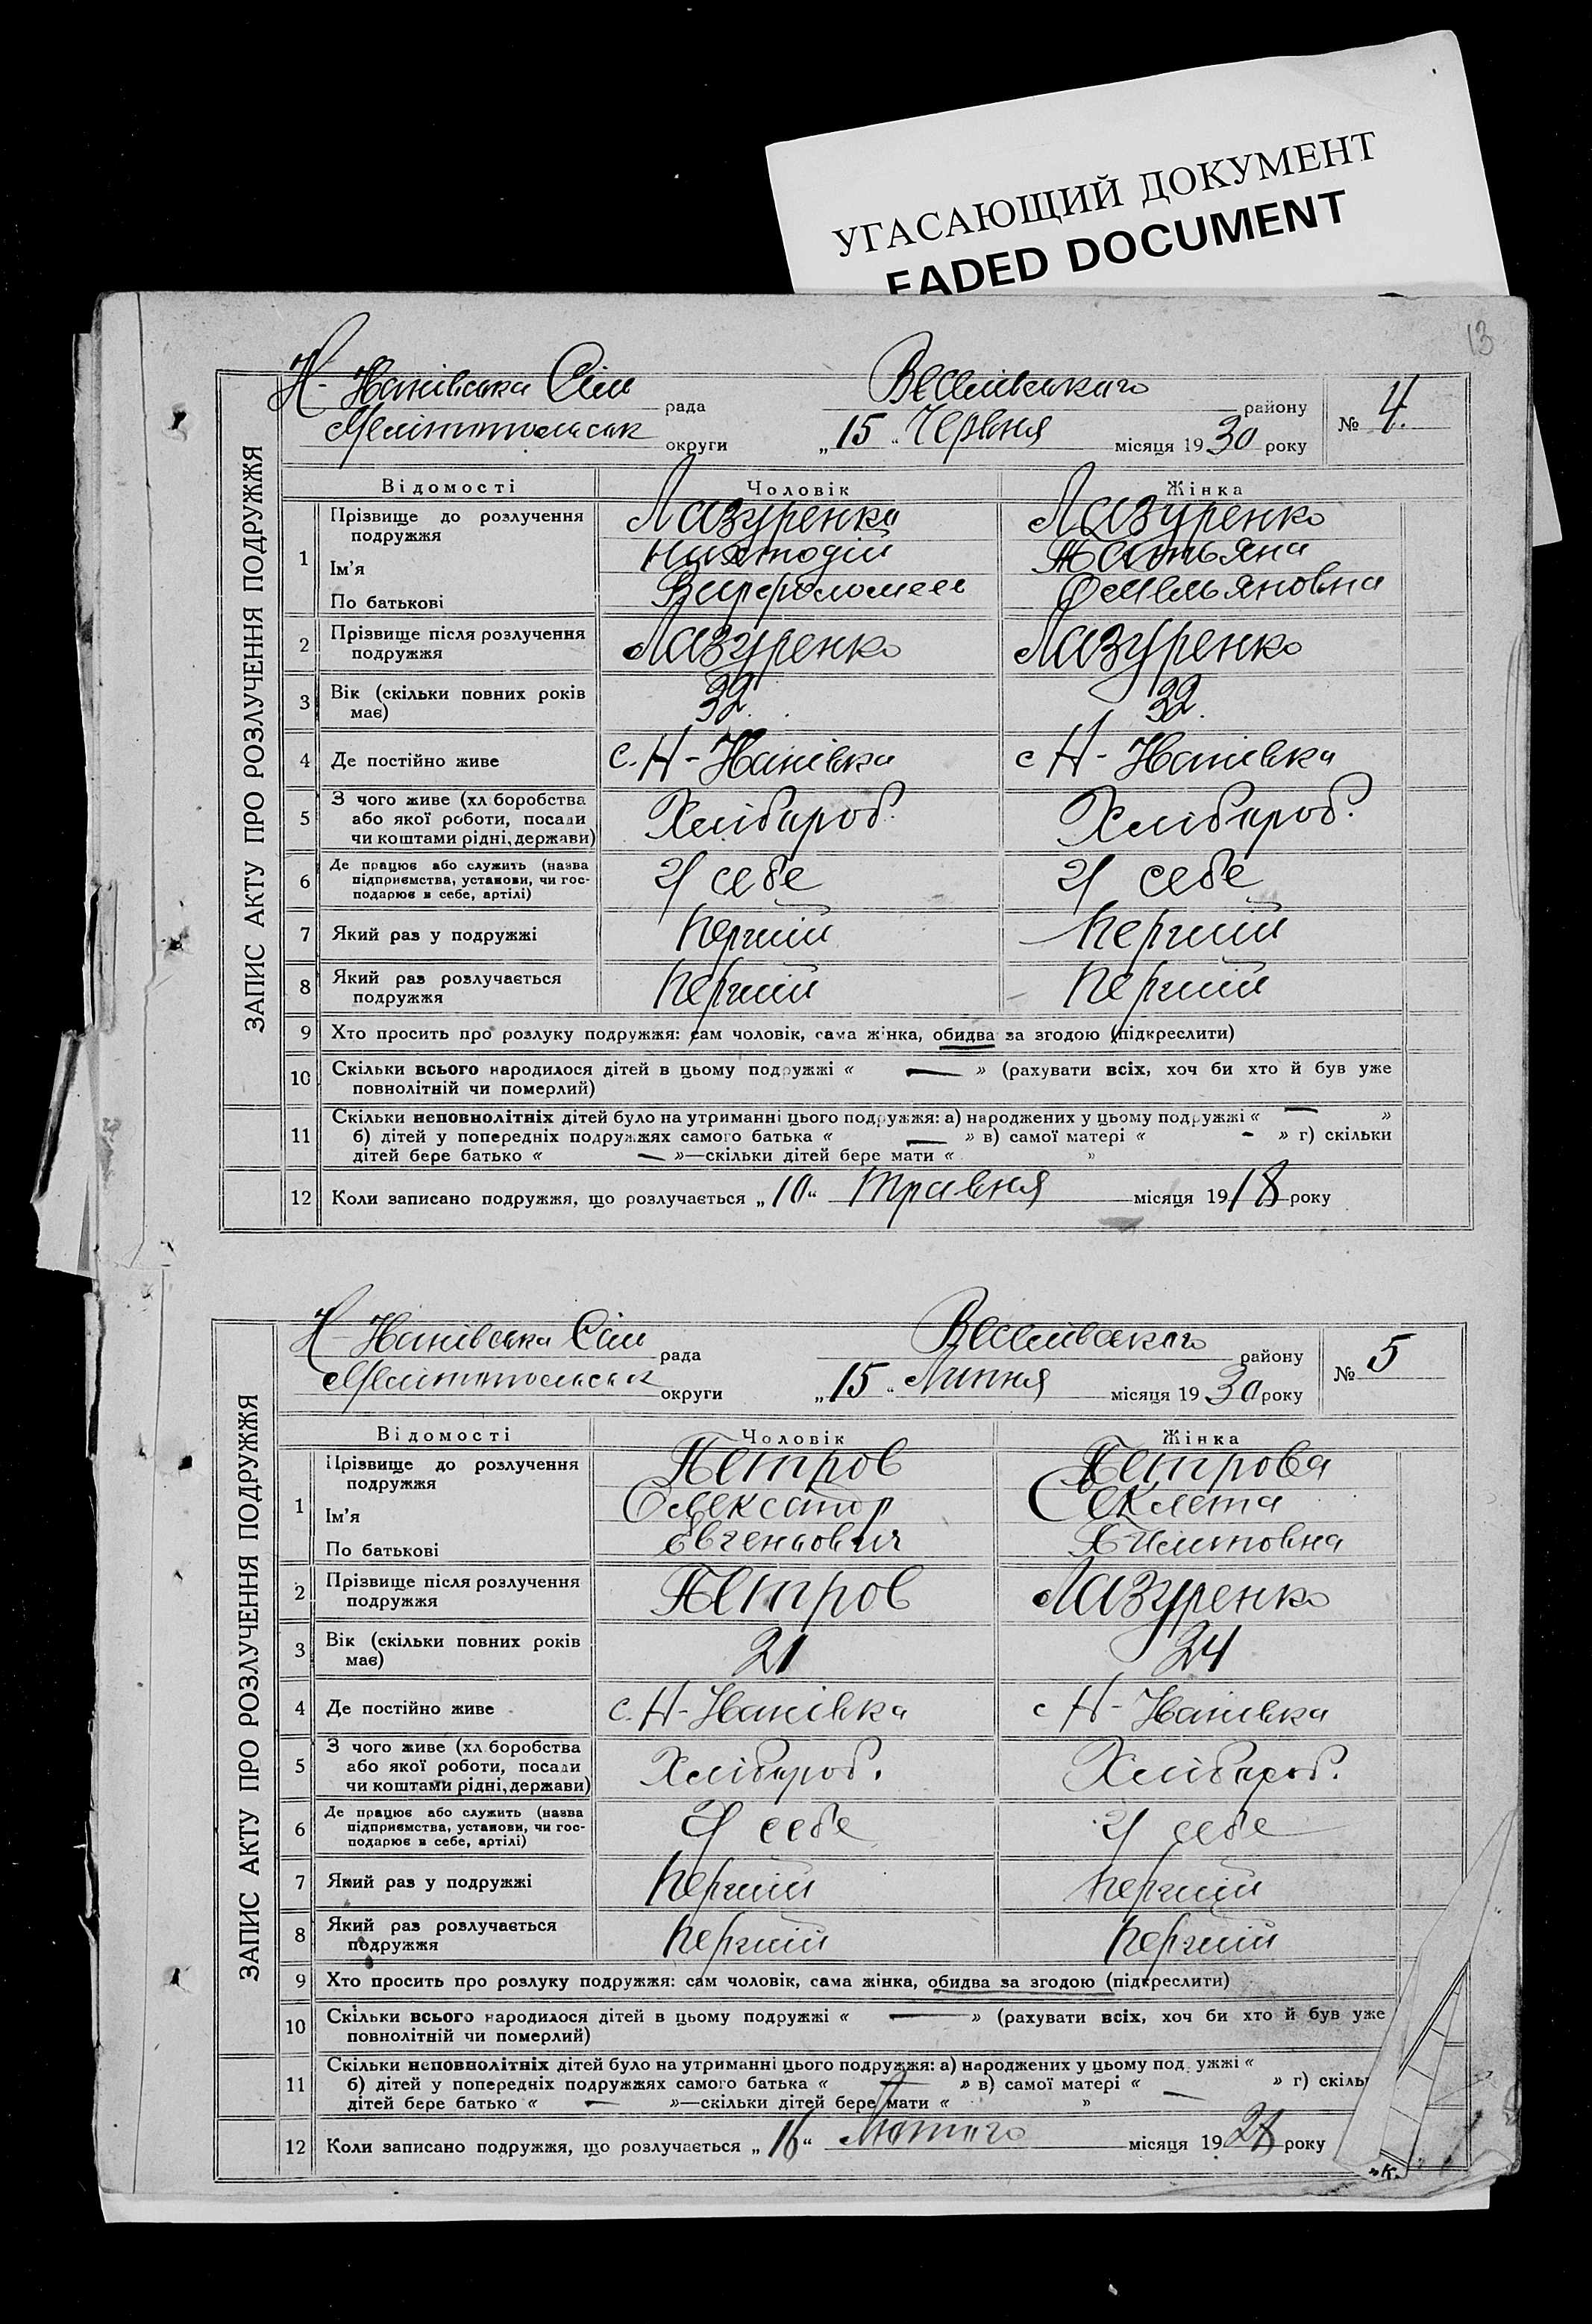 УГАСАЮЩИЙ ДОКУМЕНТ
FADED DOCUMENT
13
ЗАПИС АКТУ ПРО РОЗЛУЧЕННЯ ПОДРУЖЖЯ
Н-Іванівська Сіль рада Веселівського району № 4.
Мелітопольськ округи „15“ Червня місяця 1930 року
Відомості Чоловік Жінка
1 Прізвище до розлучення подружжя Лазуренко Лазуренко
Ім'я Татьяна
По батькові Варфоломеев Омельяновна
2 Прізвище після розлучення подружжя Лазуренко Лазуренко
3 Вік (скільки повних років має) 32. 32.
4 Де постійно живе с. Н-Іванівка с Н-Іванівка
5 З чого живе (хліборобства або якої роботи, посади чи коштами рідні, держави) Хлібороб. Хлібороб.
6 Де працює або служить (назва підприємства, установи, чи господарює в себе, артілі) У себе У себе
7 Який раз у подружжі Перший Перший
8 Який раз розлучається подружжя Перший Перший
9 Хто просить про розлуку подружжя: сам чоловік, сама жінка, обидва за згодою (підкреслити)
10 Скільки всього народилося дітей в цьому подружжі « — » (рахувати всіх, хоч би хто й був уже
повнолітній чи померлий)
11 Скільки неповнолітніх дітей було на утриманні цього подружжя: а) народжених у цьому подружжі « — »
б) дітей у попередніх подружжях самого батька « — » в) самої матері « - » г) скільки
дітей бере батько « — »—скільки дітей бере мати « »
12 Коли записано подружжя, що розлучається „10“ травня місяця 1918 року
ЗАПИС АКТУ ПРО РОЗЛУЧЕННЯ ПОДРУЖЖЯ
Н-Іванівська Сіль рада Веселівського району № 5
Мелітопольськ округи „15“ Липня місяця 1930 року
Відомості Чоловік Жінка
1 Прізвище до розлучення подружжя Петров Петрова
Ім'я Олександр Секлета
По батькові Євгенович
2 Прізвище після розлучення подружжя Петров Лазуренко
3 Вік (скільки повних років має) 21 24
4 Де постійно живе с. Н-Іванівка с Н-Іванівка
5 З чого живе (хліборобства або якої роботи, посади чи коштами рідні, держави) Хлібороб. Хлібороб.
6 Де працює або служить (назва підприємства, установи, чи господарює в себе, артілі) У себе У себе
7 Який раз у подружжі Перший Перший
8 Який раз розлучається подружжя Перший Перший
9 Хто просить про розлуку подружжя: сам чоловік, сама жінка, обидва за згодою (підкреслити)
10 Скільки всього народилося дітей в цьому подружжі « — » (рахувати всіх, хоч би хто й був уже
повнолітній чи померлий)
11 Скільки неповнолітніх дітей було на утриманні цього подружжя: а) народжених у цьому подружжі «
б) дітей у попередніх подружжях самого батька « — » в) самої матері « — » г) скіль
дітей бере батько « — »—скільки дітей бере мати « »
12 Коли записано подружжя, що розлучається „16“ Лютого місяця 1928 року